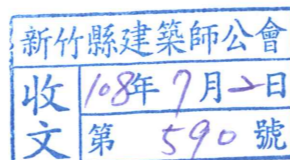 新竹縣建築師公會
收文
108年7月2日
第 590 號